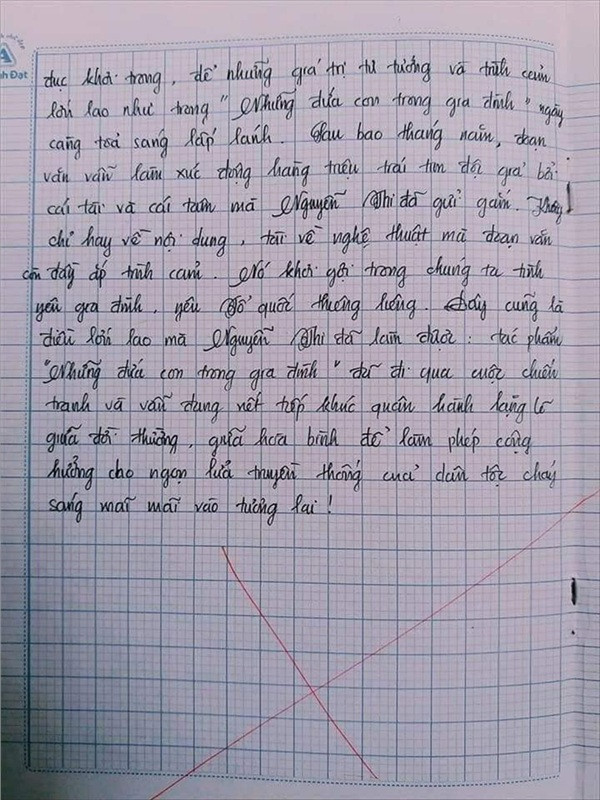 nh Đạt
dục khơi trong, để những giá trị tư tưởng và tình cảm
lớn lao như trong "Những đứa con trong gia đình" ngày
càng toả sáng lấp lánh. Sau bao tháng năm, đoạn
văn vẫn làm xúc động hàng triệu trái tim độc giả bởi
cái tài và cái tâm mà Nguyễn Thi đã gửi gắm. Không
chỉ hay về nội dung, tài về nghệ thuật mà đoạn văn
còn đầy ắp tình cảm. Nó khơi gợi trong chúng ta tình
yêu gia đình, yêu Tổ quốc thương luông. Đây cũng là
điều lớn lao mà Nguyễn Thi đã làm được: tác phẩm
"Những đứa con trong gia đình" đã đi qua cuộc chiến
tranh và vẫn đang viết tiếp khúc quân hành lặng lẽ
giữa đời thường, giữa hòa bình để làm phép cộng
hưởng cho ngọn lửa truyền thống của dân tộc cháy
sáng mãi mãi vào tương lai!